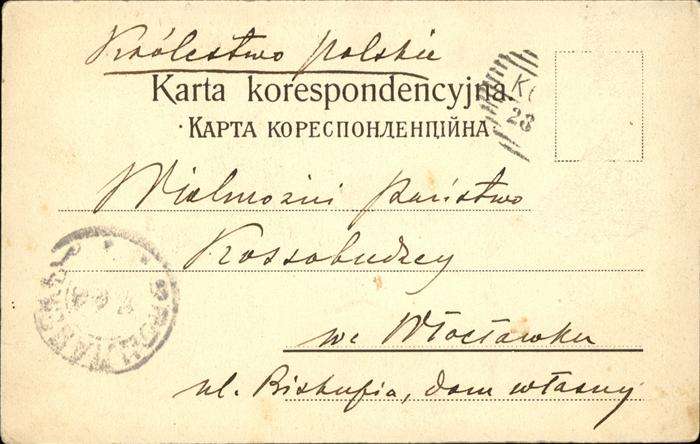 Królestwo polskie
Karta korespondencyjna.
·КАРТА КОРЕСПОНДЕНЦІЙНА·
23
Wielmożni państwo
Kossobudzcy
we Włocławku
ul. Biskupia, dom własny